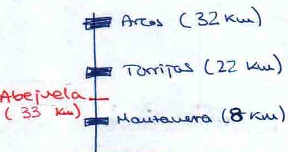 Arcos (32 Km)
Torrijas (22 Km)
Abejuela
(33 Km)
Manzanera (8 Km)